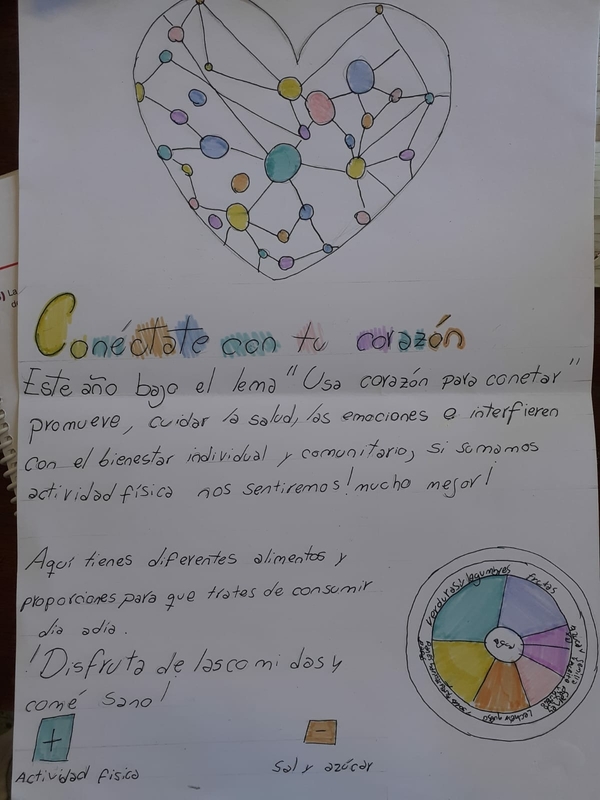 Conéctate con tu corazón
Este año bajo el lema "Usa corazón para conetar"
promueve, cuidar la salud, las emociones e interfieren
con el bienestar individual y comunitario, si sumamos
actividad física nos sentiremos! mucho mejor!
Aquí tienes diferentes alimentos y
proporciones para que trates de consumir
día adia.
!Disfruta de las comidas y
comé sano!
verduras y legumbres
frutas
agua
+
Actividad física
-
Sal y azúcar